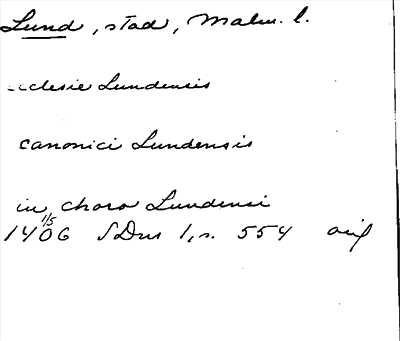 Lund, stad, Malm. l.
ecclesie Lundensis
canonici Lundensis
in choro Lundensi
1/5
1406 SDns 1, s. 554